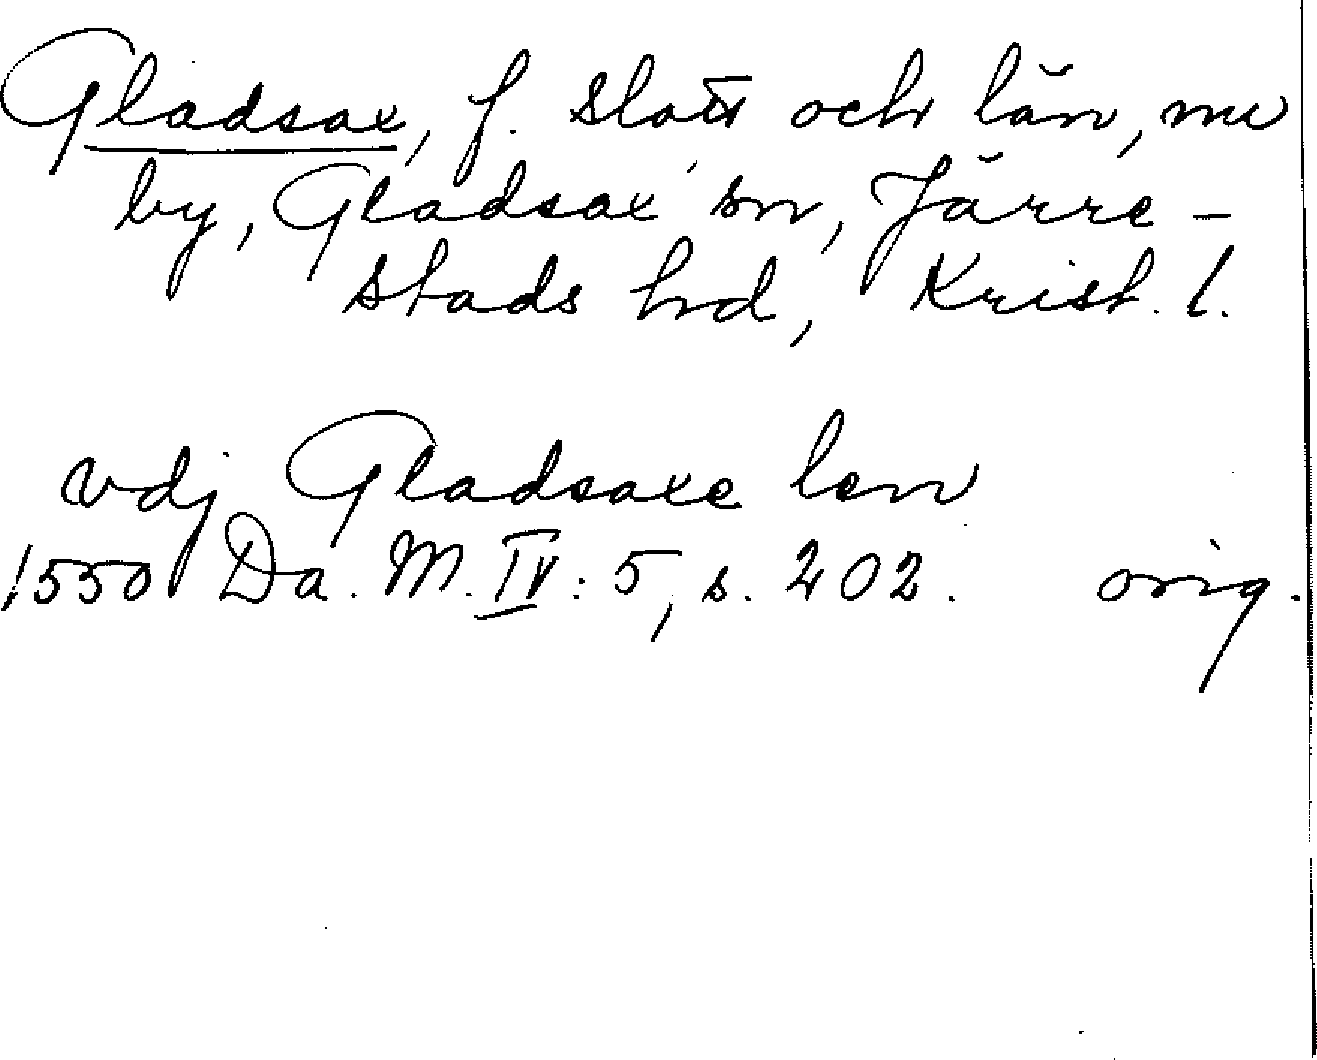 Gladsax, f. slott och län, nu
by, Gladsax sn, Järre-
stads hd, Krist. l.
vdj Gladsaxe len
1550 Da. M. IV: 5, s. 202. orig.